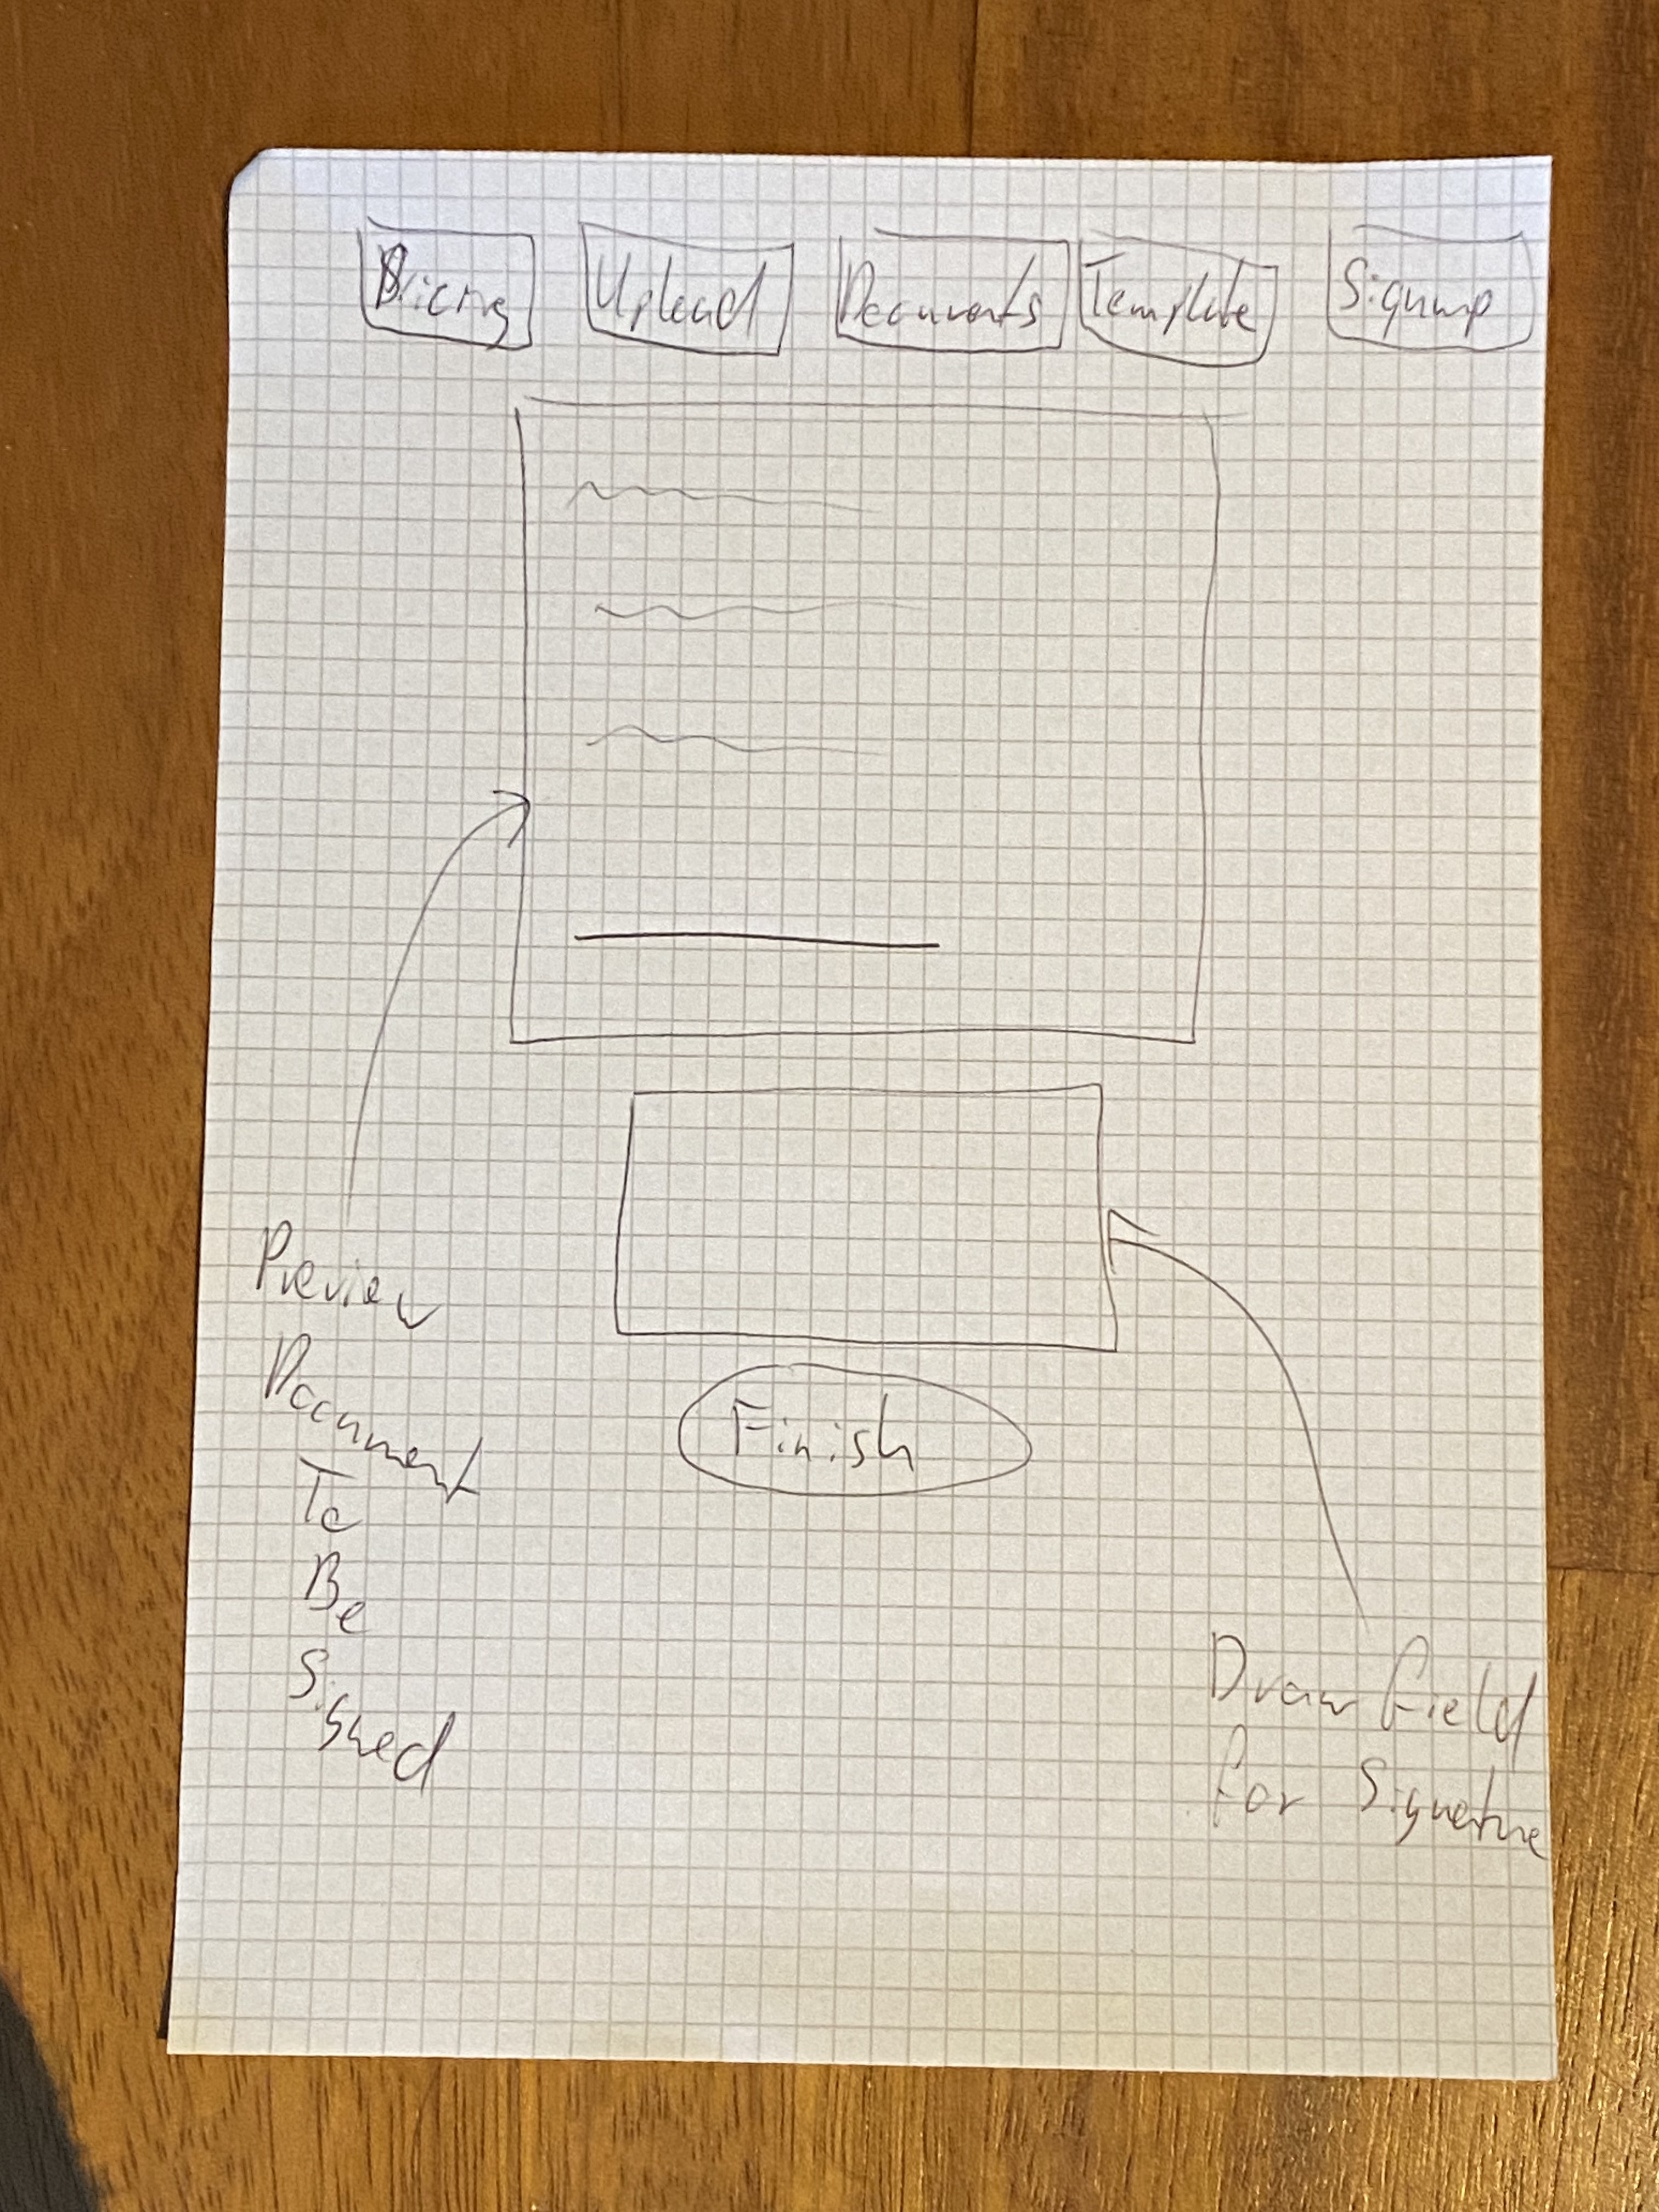 Pricing
Upload
Documents
Template
Signup
Preview
Document
To
Be
Signed
Finish
Draw field
for Signature